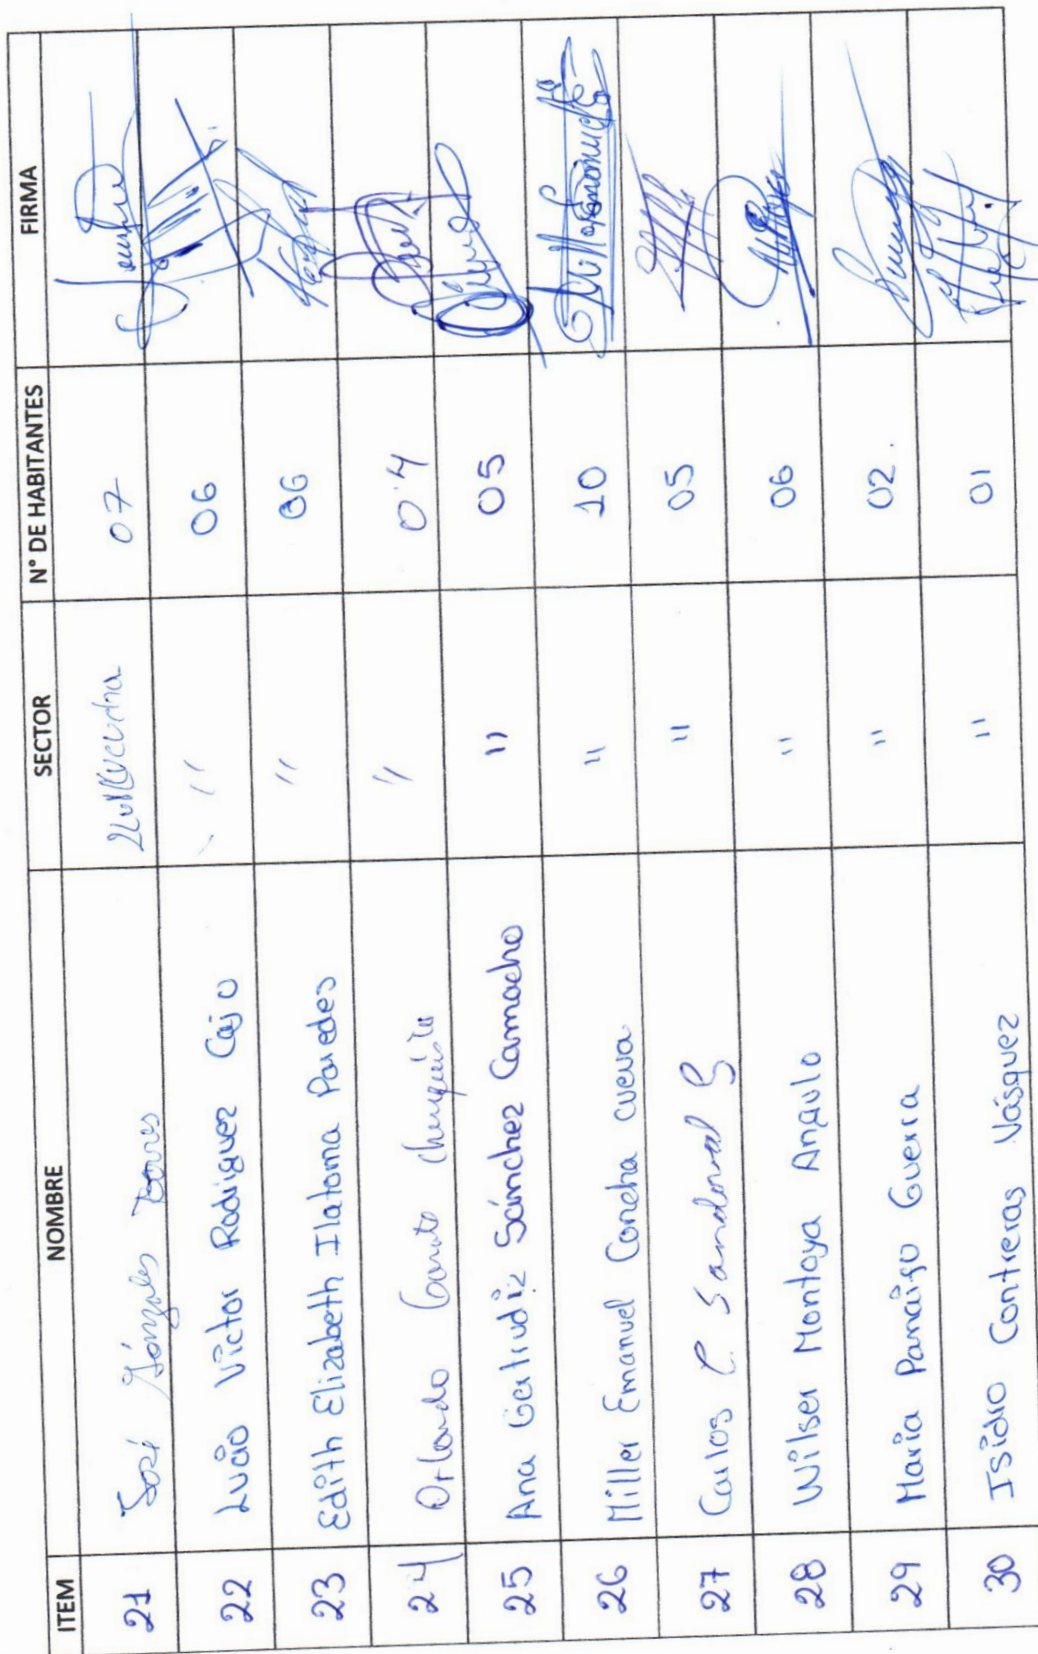 ITEM NOMBRE SECTOR N° DE HABITANTES FIRMA
21 José Gónzales Torres 07
22 Lucio Victor Rodriguez Cajo " 06
23 Edith Elizabeth Ilatoma Paredes " 06
24 Orlando " 04
25 Ana Gertrudiz Sánchez Camacho " 05
26 Miller Emanuel Concha cueva " 10
27 Carlos C. Sandoval S " 05
28 Wilser Montoya Angulo " 06
29 Maria Panaifo Guerra " 02.
30 Isidro Contreras Vásquez " 01